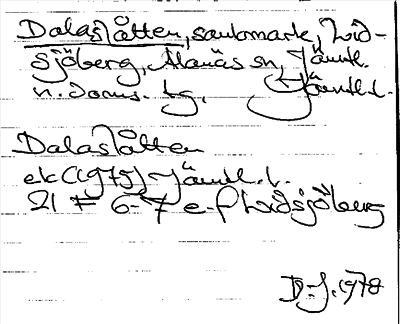 Dalaslåtten, samlomarte, Hvid-
sjöberg, Alanäs sn, Jämtl.
n. doms. tg, Jämtl. l.
Dalaslåtten
ek (1975) Jämtl. l.
21 F 6-7 e-f Hvidsjöberg
D-J. 1978